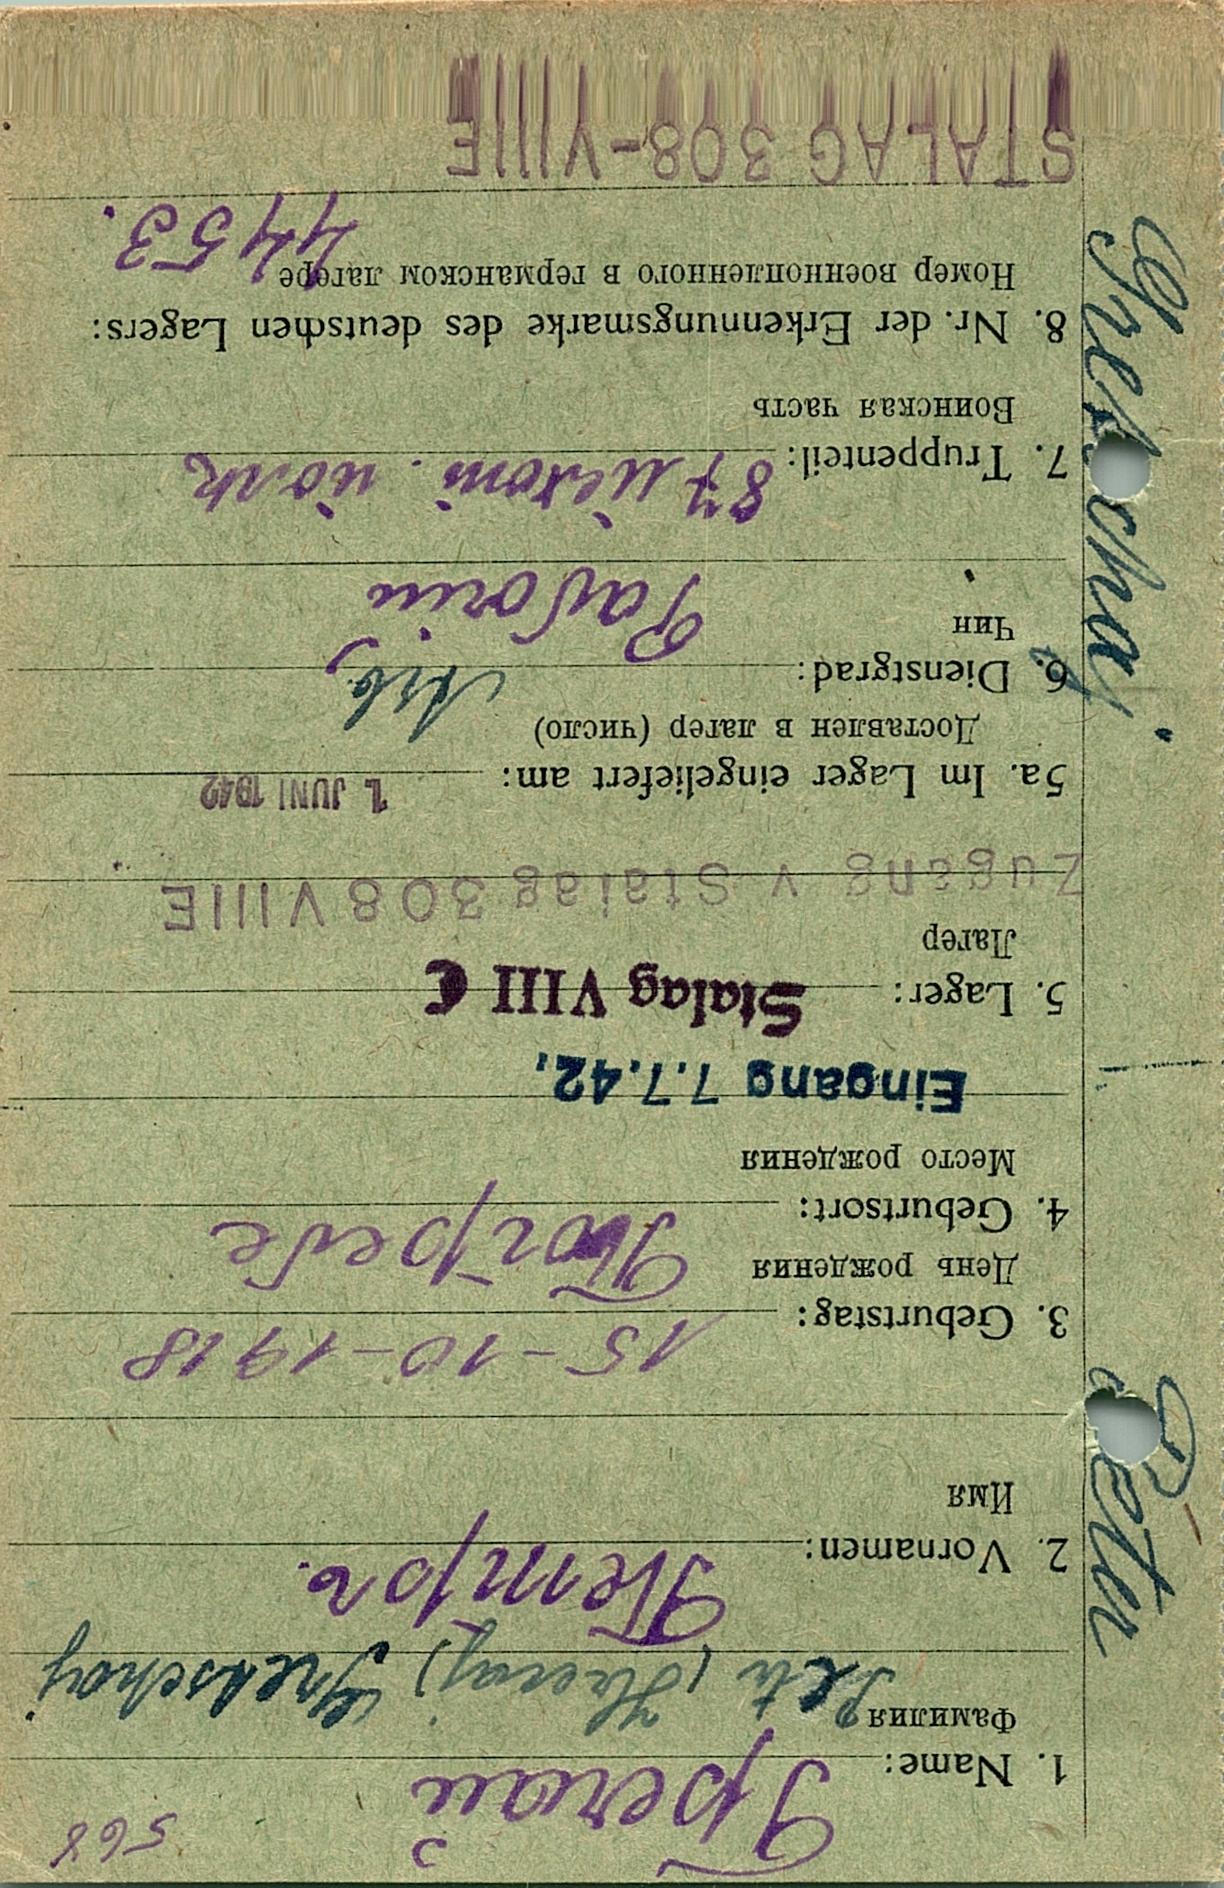 568
1. Name:
Фамилия
2. Vornamen: Петр.
Имя
3. Geburtstag: 15-10-1918
День рождения
4. Geburtsort:
Место рождения
Eingang 7.7.42,
5. Lager: Stalag VIII C
Лагер
Zugang v Stalag 308 VIIIE
5a. Im Lager eingeliefert am: 1. JUNI 1942
Доставлен в лагер (число)
6. Dienstgrad: Arb.
Чин
7. Truppenteil: 87
Воинская часть
8. Nr. der Erkennungsmarke des deutschen Lagers:
Номер военнопленного в германском лагере 4453.
STALAG 308-VIIIE
Peter